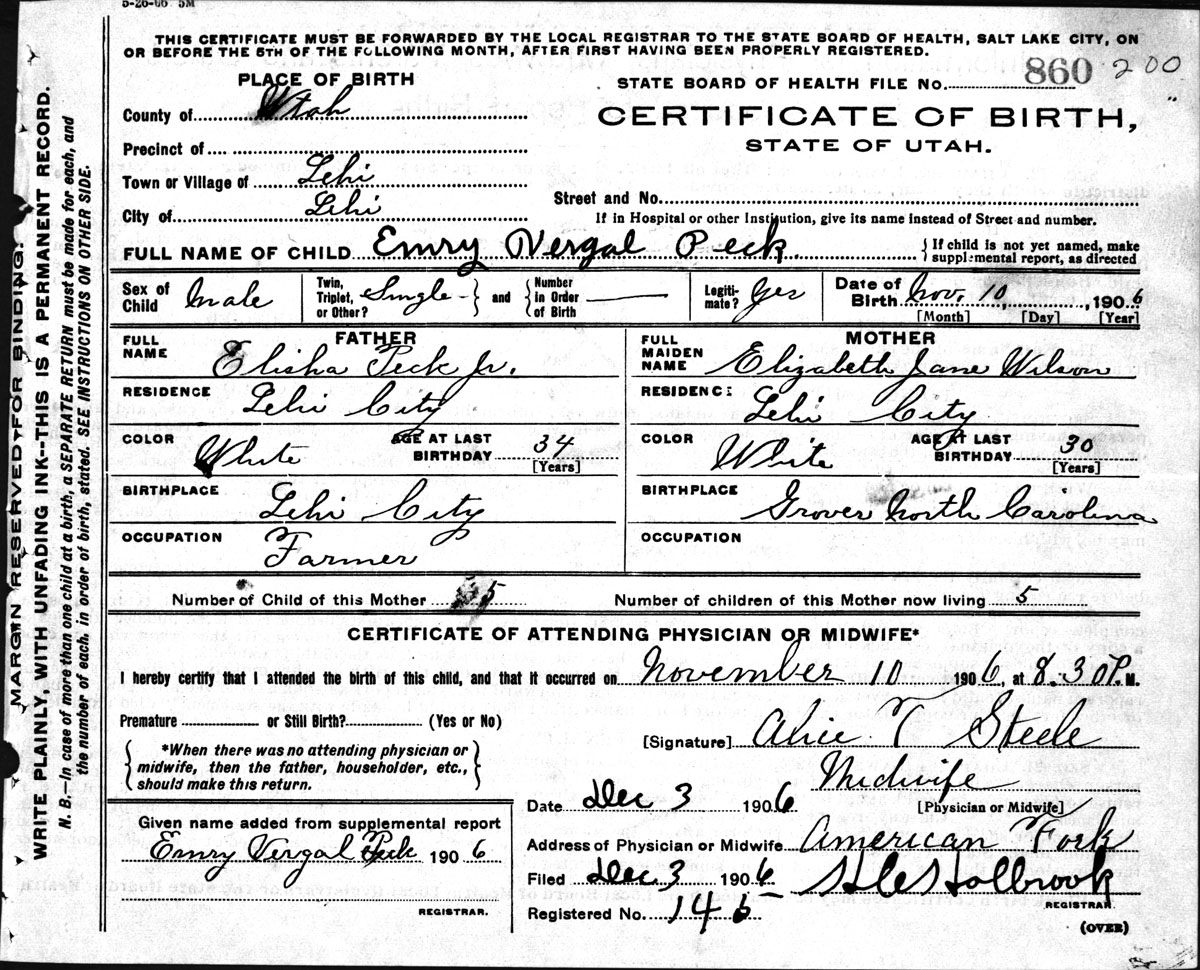 5-26-06 5M
THIS CERTIFICATE MUST BE FORWARDED BY THE LOCAL REGISTRAR TO THE STATE BOARD OF HEALTH, SALT LAKE CITY, ON
OR BEFORE THE 5TH OF THE FOLLOWING MONTH, AFTER FIRST HAVING BEEN PROPERLY REGISTERED.
PLACE OF BIRTH
STATE BOARD OF HEALTH FILE No. 860 200
County of Utah
CERTIFICATE OF BIRTH,
STATE OF UTAH.
Precinct of
Town or Village of Lehi
City of Lehi
Street and No.
If in Hospital or other Institution, give its name instead of Street and number.
FULL NAME OF CHILD Emry Vergal Peck. { If child is not yet named, make
supplemental report, as directed
Sex of Child Male Twin, Triplet, or Other? Single } and { Number in Order of Birth Legiti-mate? Yes Date of Birth Nov. 10, 1906
[Month] [Day] [Year]
FATHER
FULL NAME Elisha Peck Jr.
RESIDENCE Lehi City
COLOR White AGE AT LAST BIRTHDAY 34
[Years]
BIRTHPLACE Lehi City
OCCUPATION Farmer
MOTHER
FULL MAIDEN NAME Elizabeth Jane Wilson
RESIDENCE Lehi City
COLOR White AGE AT LAST BIRTHDAY 30
[Years]
BIRTHPLACE Grover North Carolina
OCCUPATION
Number of Child of this Mother 5 Number of children of this Mother now living 5
CERTIFICATE OF ATTENDING PHYSICIAN OR MIDWIFE*
I hereby certify that I attended the birth of this child, and that it occurred on November 10 1906, at 8.30 P. M.
Premature or Still Birth? (Yes or No)
[Signature] Alice T Steele
{ *When there was no attending physician or
midwife, then the father, householder, etc.,
should make this return. }
Midwife
Date Dec 3 1906 [Physician or Midwife]
Given name added from supplemental report
Emry Vergal Peck 1906
REGISTRAR.
Address of Physician or Midwife American Fork
Filed Dec. 3 1906 Holbrook
REGISTRAR.
Registered No. 145
(OVER)
MARGIN RESERVED FOR BINDING.
WRITE PLAINLY, WITH UNFADING INK--THIS IS A PERMANENT RECORD.
N. B.—In case of more than one child at a birth, a SEPARATE RETURN must be made for each, and
the number of each, in order of birth, stated. SEE INSTRUCTIONS ON OTHER SIDE.